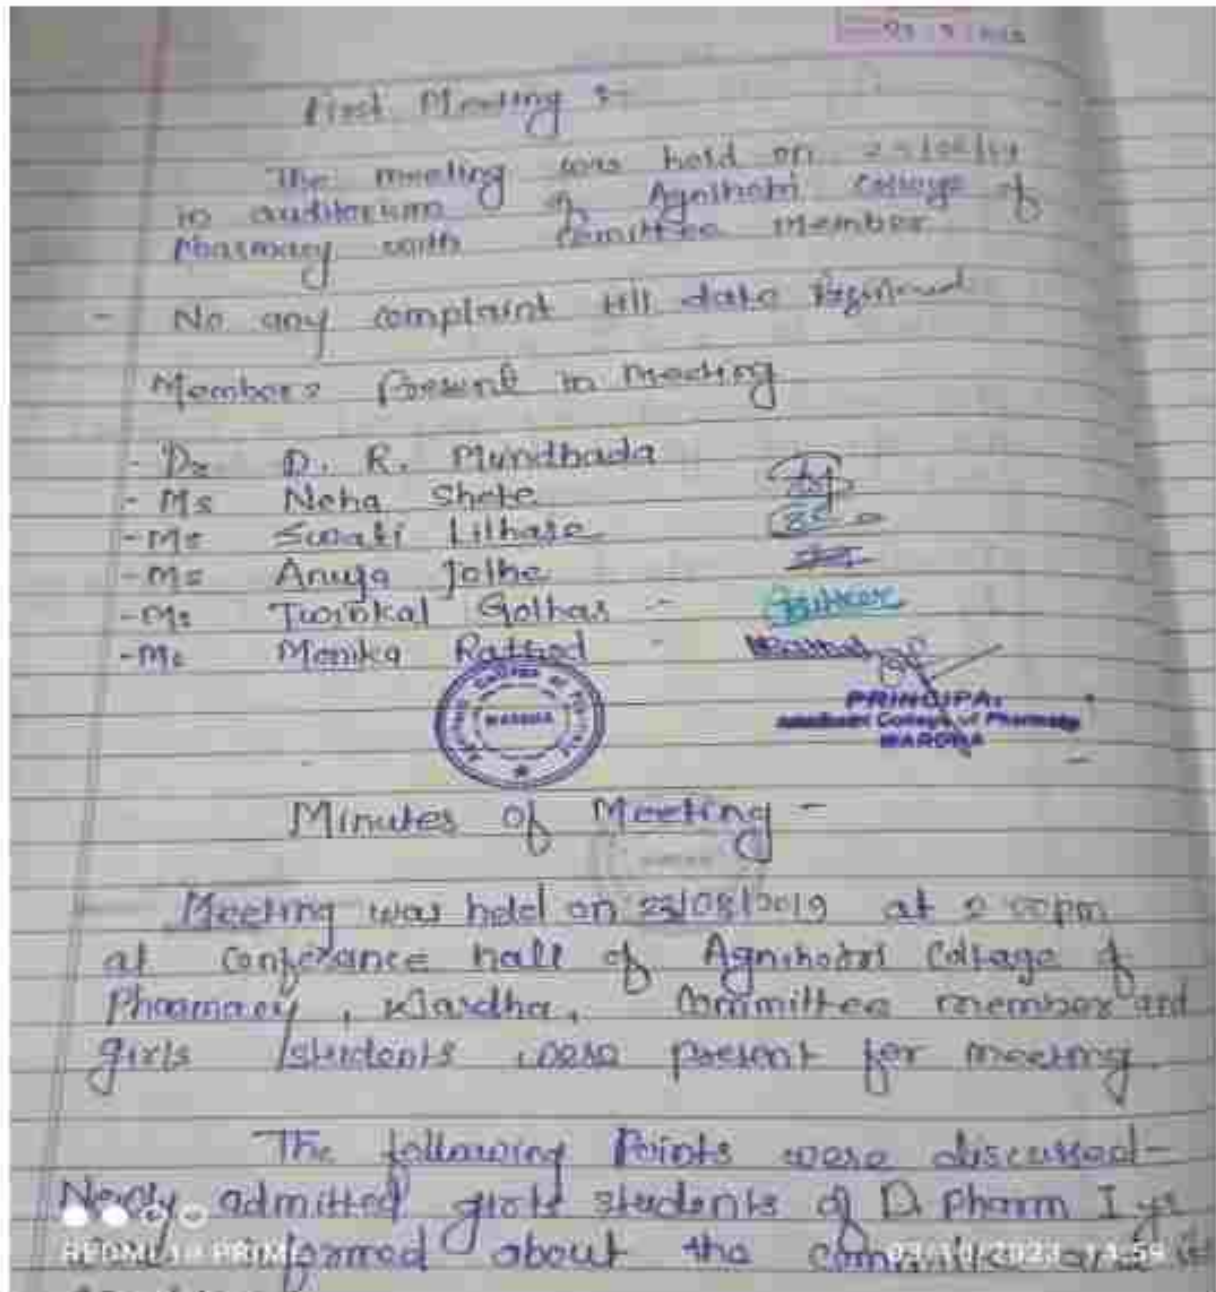 First Meeting :-
The meeting was held on
in auditorium of Agnihotri College of
Pharmacy with Comittee member
- No any complaint till date
Members Present in meeting
- Dr. D. R. Mundhada
- Ms Neha Shete
- Ms Swati Lilhare
- Ms Anuja Jolhe
- Ms Twinkal Golhar -
- Ms Monika Rathod -
WARDHA
PRINCIPAL
Agnihotri College of Pharmacy
WARDHA
Minutes of Meeting -
Meeting was held on 23/08/2019 at 2:00pm
at Conferance hall of Agnihotri Collage of
Pharmacy, Wardha, Committee member and
girls students were present for meeting.
The following Points were discussed -
Newly admitted girls students of D. Pharm I yr
were informed about the committee and it
REDMI 10 PRIME
03/10/2023 14:59